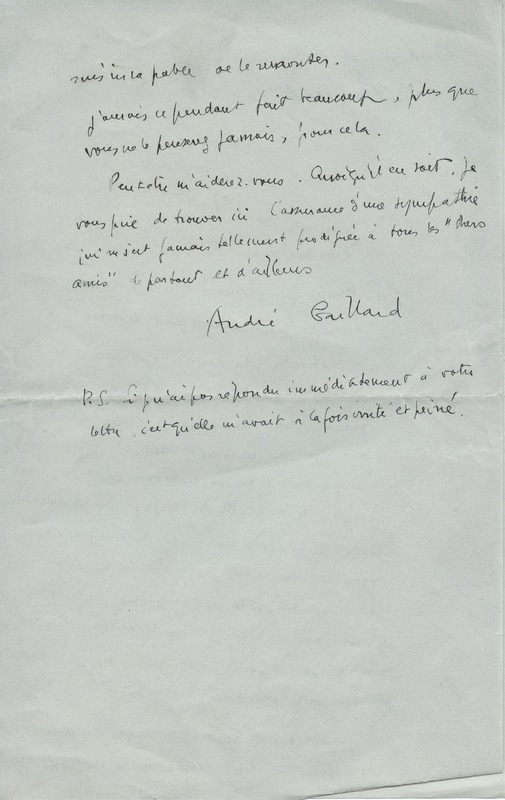 suis incapable de le remonter.
j'aurais cependant fait beaucoup, plus que
vous ne le penserez jamais, pour cela.
Peut-être m'aiderez-vous. Quoiqu'il en soit, je
vous prie de trouver ici l'assurance d'une sympathie
qui n'est jamais tellement prodiguée à tous les "chers
amis" de partout et d'ailleurs
André Gaillard
P.S. Si je n'ai pas répondu immédiatement à votre
lettre, c'est qu'elle m'avait à la fois irrité et peiné.